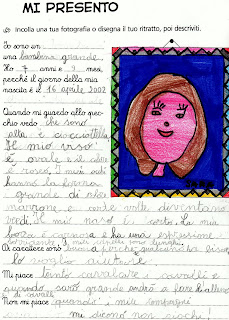 MI PRESENTO
Incolla una tua fotografia o disegna il tuo ritratto, poi descriviti.
Io sono un
una bambina grande.
Ho 7 anni e 9 mesi,
perché il giorno della mia
nascita è il 16 aprile 2002
Quando mi guardo allo spec-
chio vedo che sono
alta e cicciottella.
Il mio viso
è ovale e il
è roseo, I miei occhi
hanno la forma
grande di
marrone, e certe volte diventano
verdi. Il mio naso è corto. La mia
bocca è carnosa e ha una espressione
sorridente. I miei capelli sono lunghi.
Di carattere sono buona perché qualcuno ha bisogno
lo voglio aiutare.
Mi piace tanto cavalcare i cavalli e
quando sarò grande andrò a fare
di cavalli
Non mi piace quando i miei compagni
mi dicono